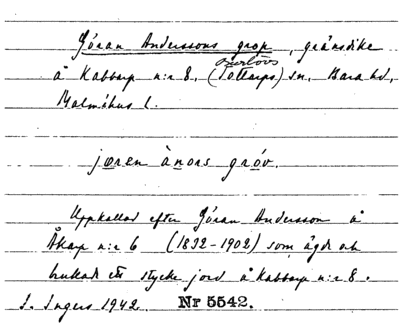 Jöran Anderssons grop, gränsdike
Burlövs
å Kabbarp n:r 8, (Tottarps) sn, Bara hd,
Malmöhus l.
jøren ànors gróv.
Uppkallad efter Jöran Andersson å
Åkarp n:r 6 (1832-1902) som ägde och
brukade ett stycke jord å Kabbarp n:r 8.
I. Ingers 1942. Nr 5542.